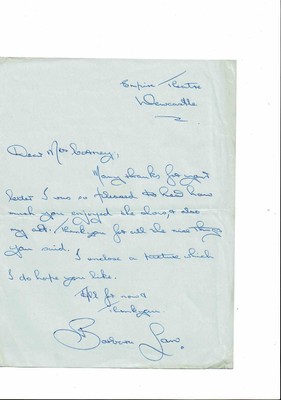 Empire Theatre
Newcastle
Dear Mrs
Many thanks for your
letter I was so pleased to how
much you enjoyed the show, & also
my act. Thank you for all the nice things
you said.
I enclose a picture which
I do hope you like.
for now &
Thankyou
Barbara Law